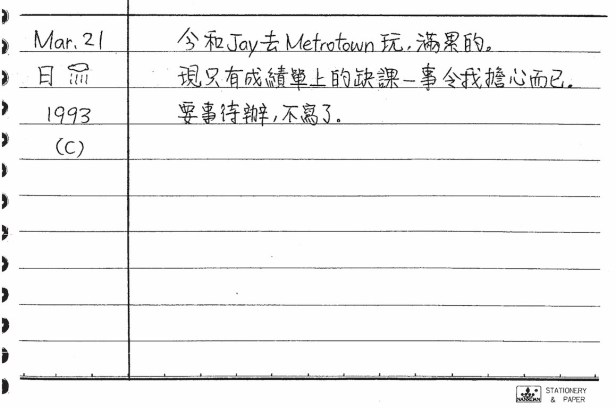 Mar. 21
今和Jay去Metrotown玩,滿累的。
日
現只有成績單上的缺課一事令我擔心而已.
1993
要事待辦,不寫了。
(C)
STATIONERY
& PAPER